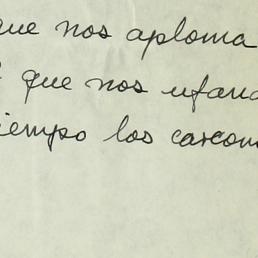 que nos aploma
que nos ufana
iempo los carcom